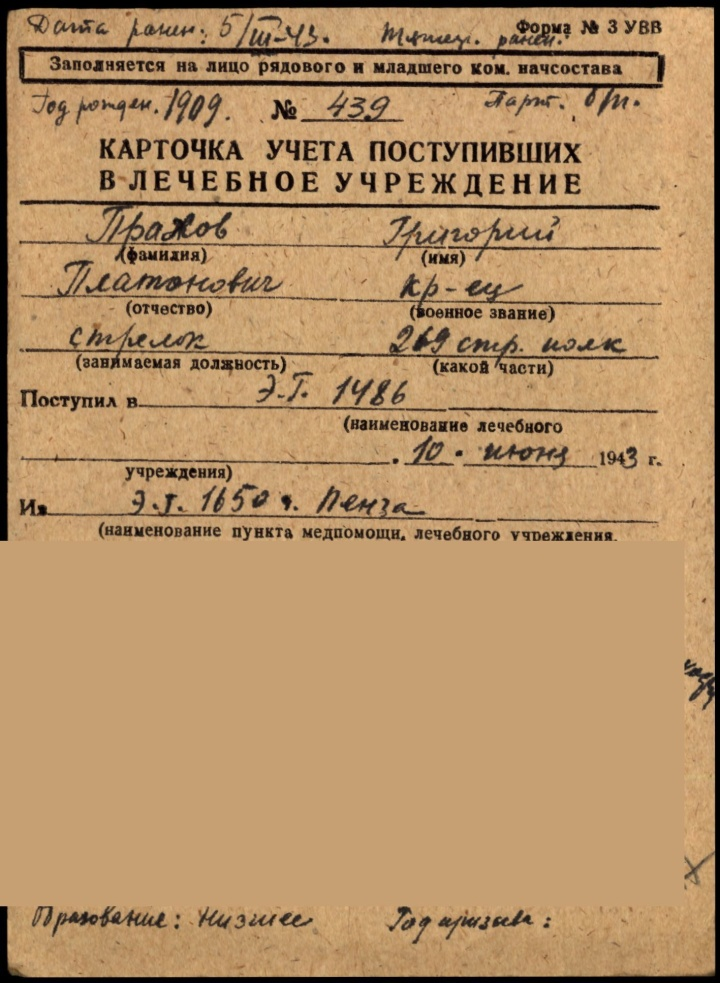 Дата ранен: 5/III-43. Тяжел. ранен.
Форма № 3 УВВ
Заполняется на лицо рядового и младшего ком. начсостава
Год рожден. 1909. № 439 Парт. б/п.
КАРТОЧКА УЧЕТА ПОСТУПИВШИХ
В ЛЕЧЕБНОЕ УЧРЕЖДЕНИЕ
Пражов Григорий
(фамилия) (имя)
Платонович кр-ец
(отчество) (военное звание)
стрелок 269 стр. полк
(занимаемая должность) (какой части)
Поступил в Э.Г. 1486
(наименование лечебного
10 июня 1943 г.
учреждения)
Из Э.Г. 1650 г. Пенза
(наименование пункта медпомощи, лечебного учреждения,
Образование: Низшее Год призыва: